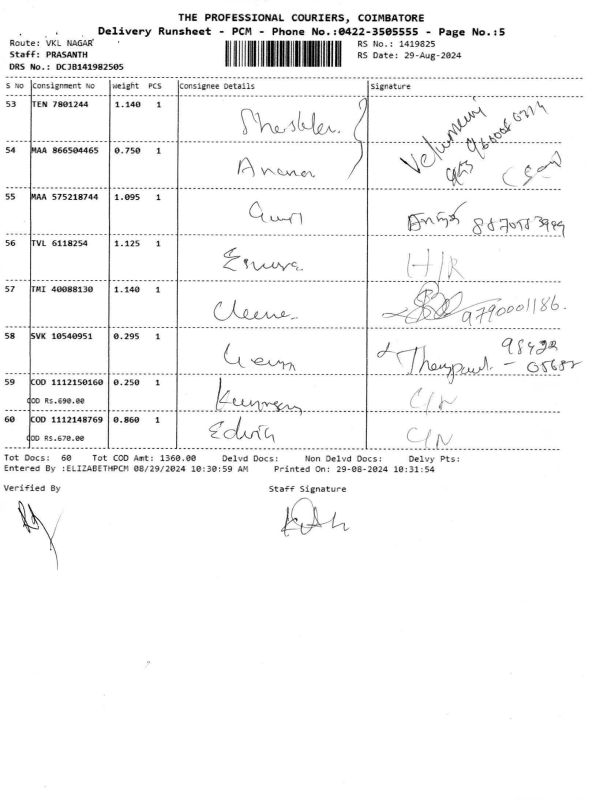 THE PROFESSIONAL COURIERS, COIMBATORE
Delivery Runsheet - PCM - Phone No.:0422-3505555 - Page No.:5
Route: VKL NAGAR RS No.: 1419825
Staff: PRASANTH RS Date: 29-Aug-2024
DRS No.: DCJB141982505
S No Consignment No Weight PCS Consignee Details Signature
53 TEN 7801244 1.140 1
54 MAA 866504465 0.750 1
55 MAA 575218744 1.095 1
56 TVL 6118254 1.125 1 H/R
57 TMI 40088130 1.140 1 9790001186.
58 SVK 10540951 0.295 1
59 COD 1112150160 0.250 1 C/N
COD Rs.690.00
60 COD 1112148769 0.860 1 Edwin C/N
COD Rs.670.00
Tot Docs: 60 Tot COD Amt: 1360.00 Delvd Docs: Non Delvd Docs: Delvy Pts:
Entered By :ELIZABETHPCM 08/29/2024 10:30:59 AM Printed On: 29-08-2024 10:31:54
Verified By Staff Signature